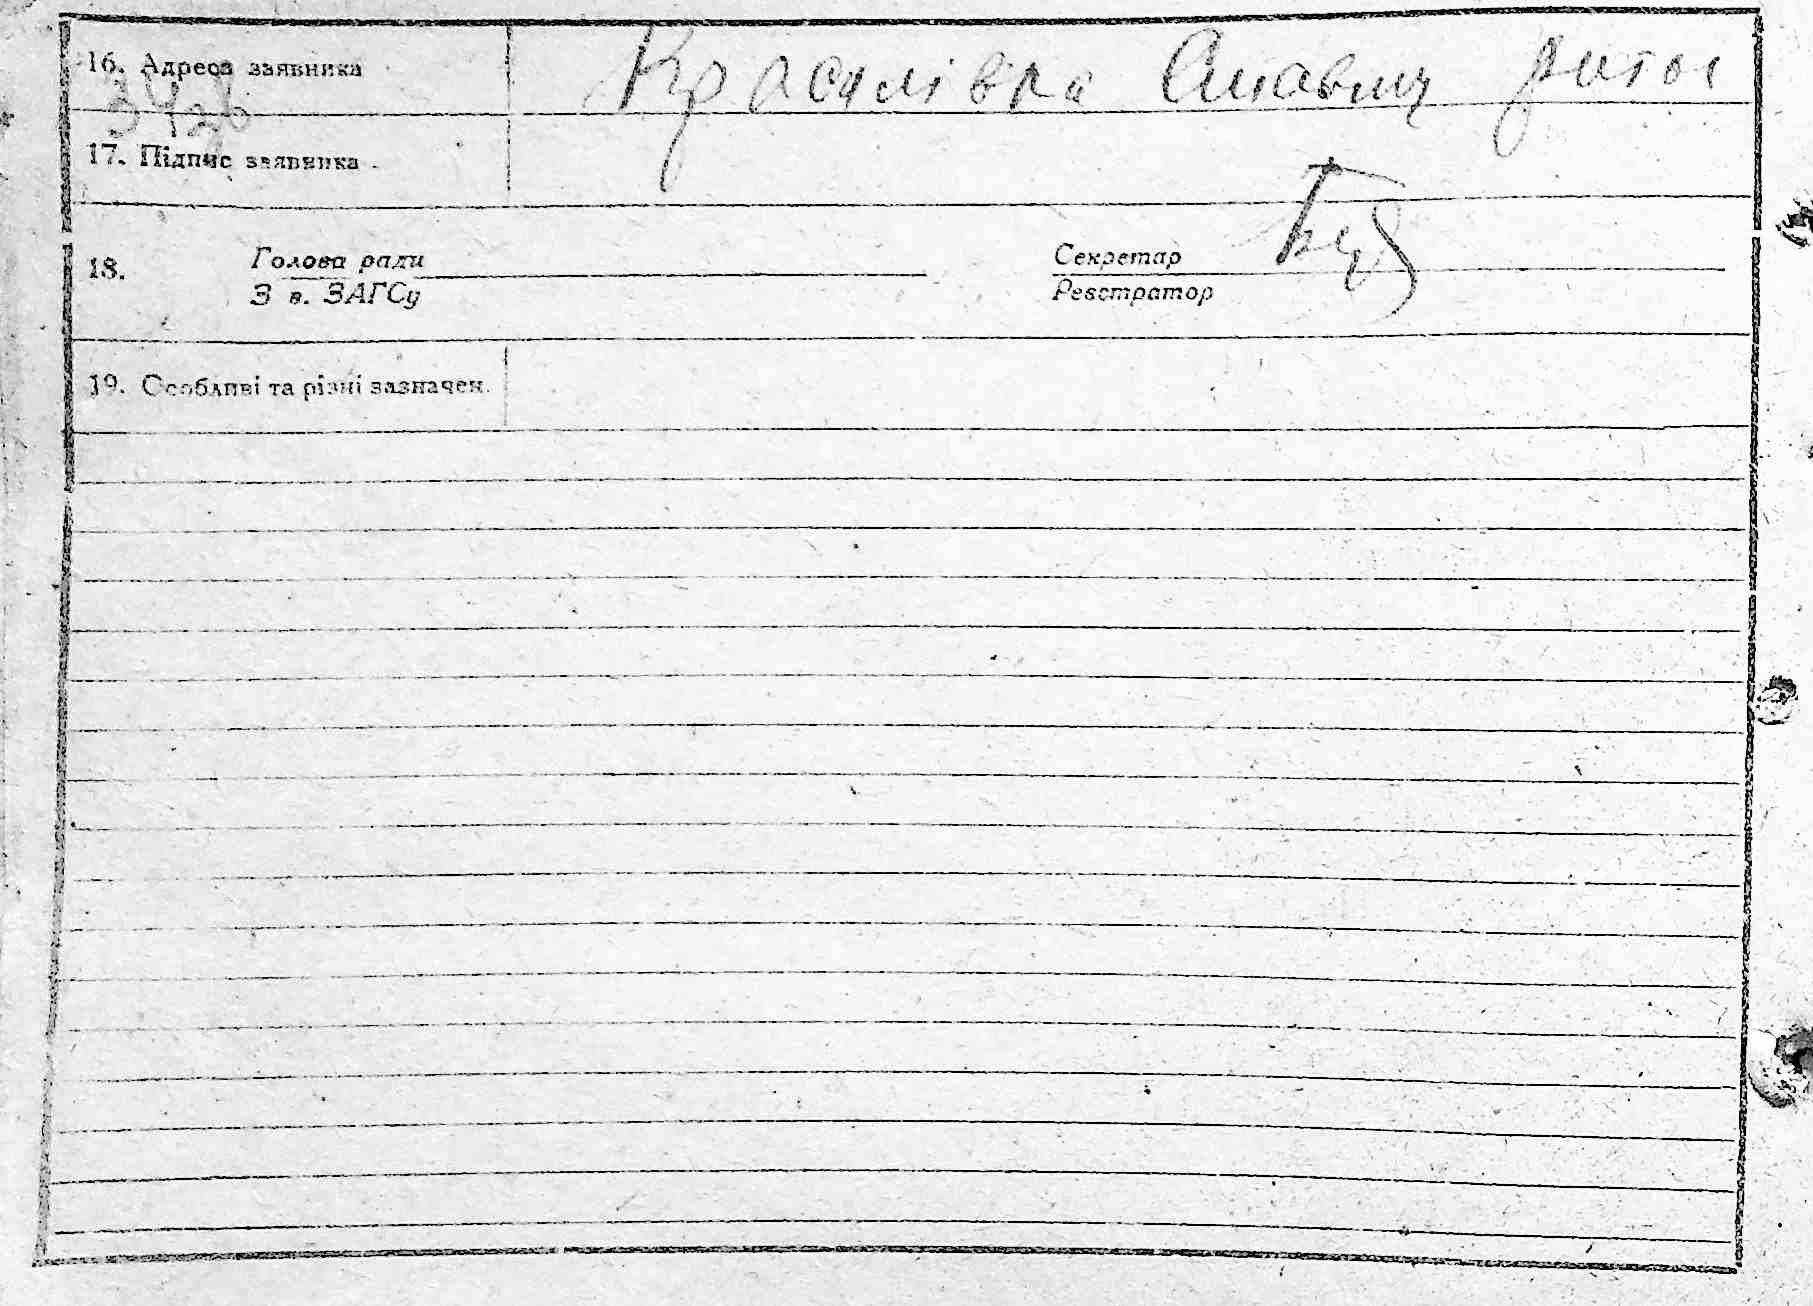 16. Адреса заявника Красилівка
17. Підпис заявника
18. Голова ради Секретар
З в. ЗАГСу Реєстратор
19. Особливі та різні зазначен.